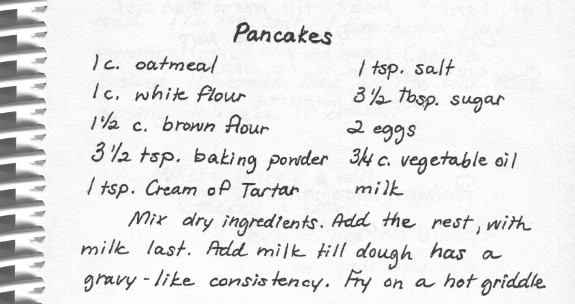 Pancakes
1 c. oatmeal 1 tsp. salt
1 c. white flour 3 1/2 Tbsp. sugar
1 1/2 c. brown flour 2 eggs
3 1/2 tsp. baking powder 3/4 c. vegetable oil
1 tsp. Cream of Tartar milk
Mix dry ingredients. Add the rest, with
milk last. Add milk till dough has a
gravy-like consistency. Fry on a hot griddle